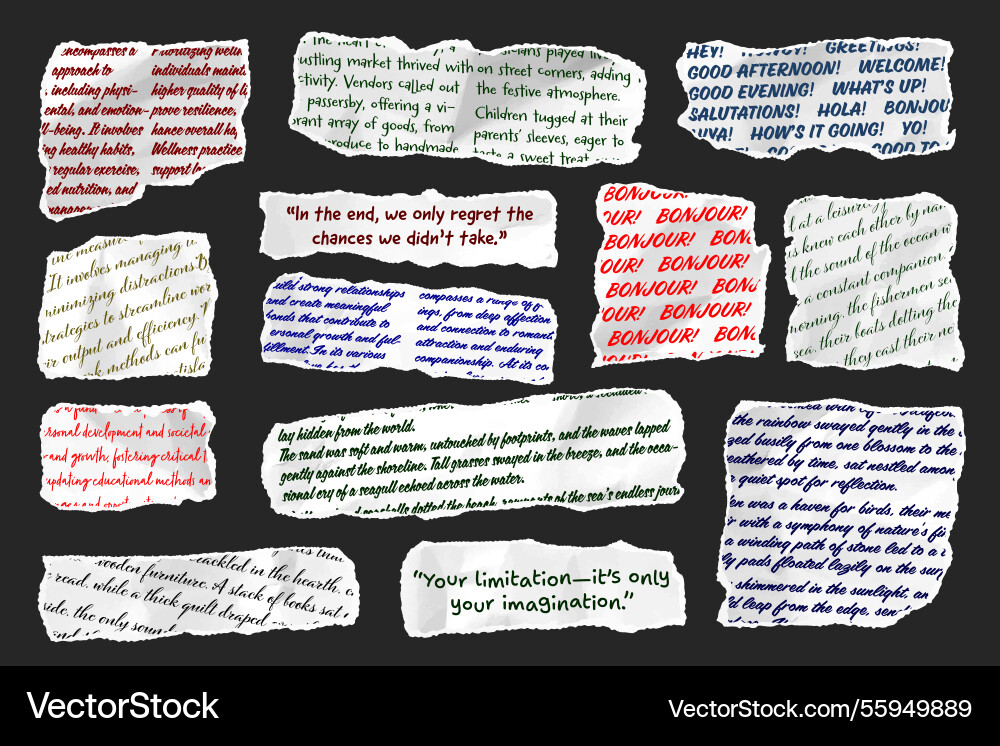 encompasses a
approach to
, including physi-
ental, and emotion-
l-being. It involves
ng healthy habits,
regular exercise,
ed nutrition, and
Prioritizing welln
individuals maint
higher quality of li
prove resilience,
hance overall ha
Wellness practice
support lo
ustling market thrived with
ctivity. Vendors called out
passersby, offering a vi-
rant array of goods, from
produce to handmade
sicians played live
on street corners, adding
the festive atmosphere.
Children tugged at their
parents' sleeves, eager to
taste a sweet treat
HEY! HOWDY! GREETINGS!
GOOD AFTERNOON! WELCOME!
GOOD EVENING! WHAT'S UP!
SALUTATIONS! HOLA! BONJOU
HIYA! HOW'S IT GOING! YO!
GOOD TO
"In the end, we only regret the
chances we didn't take."
BONJOUR!
OUR! BONJOUR!
BONJOUR! BON
OUR! BONJOUR!
BONJOUR! BONJ
OUR! BONJOUR!
BONJOUR! BON
l at a leisurely
s knew each other by nam
l the sound of the ocean w
a constant companion.
morning, the fishermen se
sea, their boats dotting the
they cast their ne
the measur
It involves managing ti
minimizing distractions. By
trategies to streamline wor
ir output and efficiency.
k methods can fu
uild strong relationships
and create meaningful
bonds that contribute to
ersonal growth and ful-
fillment. In its various
compasses a range of f
ings, from deep affection
and connection to romanti
attraction and enduring
companionship. At its co
rsonal development and societal
and growth, fostering critical t
updating educational methods an
lay hidden from the world.
The sand was soft and warm, untouched by footprints, and the waves lapped
gently against the shoreline. Tall grasses swayed in the breeze, and the occa-
sional cry of a seagull echoed across the water.
seashells dotted the beach, remnants of the sea's endless jour
the rainbow swayed gently in the
zed busily from one blossom to the
eathered by time, sat nestled amon
r quiet spot for reflection.
en was a haven for birds, their me
ir with a symphony of nature's fi
a winding path of stone led to a
ly pads floated lazily on the sur
shimmered in the sunlight, an
d leap from the edge, sen
crackled in the hearth, c
wooden furniture. A stack of books sat
read, while a thick quilt draped
side, the only soun
"Your limitation—it's only
your imagination."
VectorStock
VectorStock.com/55949889